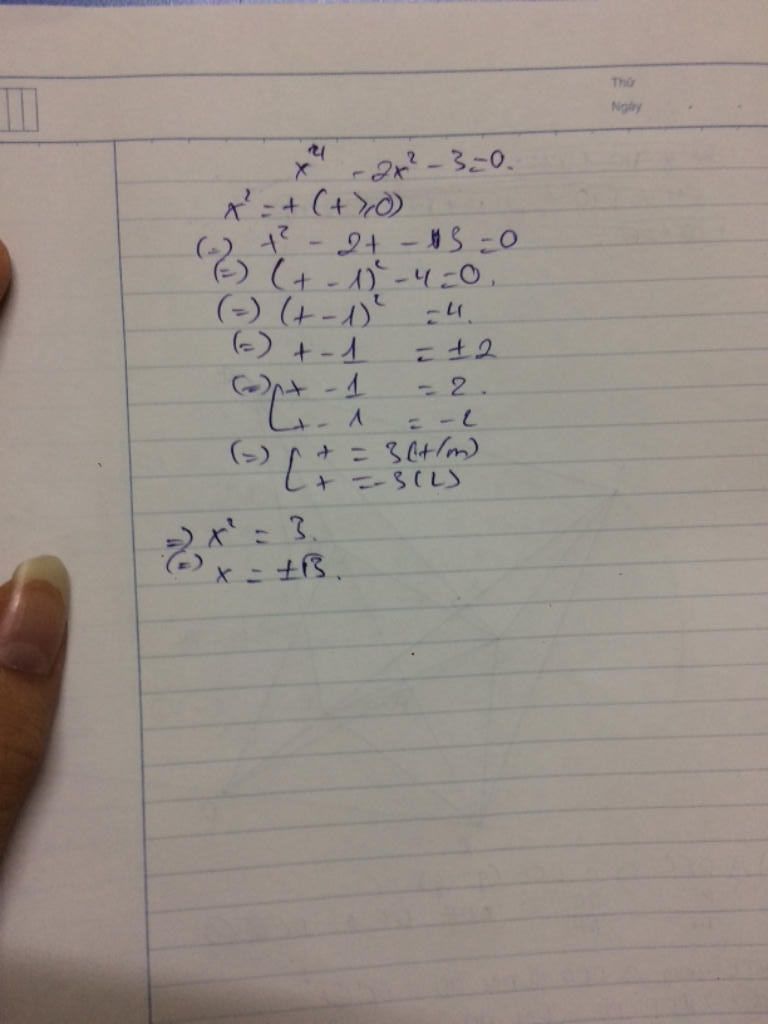 Thứ
Ngày
x⁴ - 2x² - 3 = 0.
x² = t (t ≥ 0)
(=) t² - 2t - 3 = 0
(=) (t - 1)² - 4 = 0.
(=) (t - 1)² = 4.
(=) t - 1 = ±2
(=) [ t - 1 = 2.
t - 1 = -2
(=) [ t = 3 (t/m)
t = -3 (L)
=> x² = 3.
(=) x = ±√3.